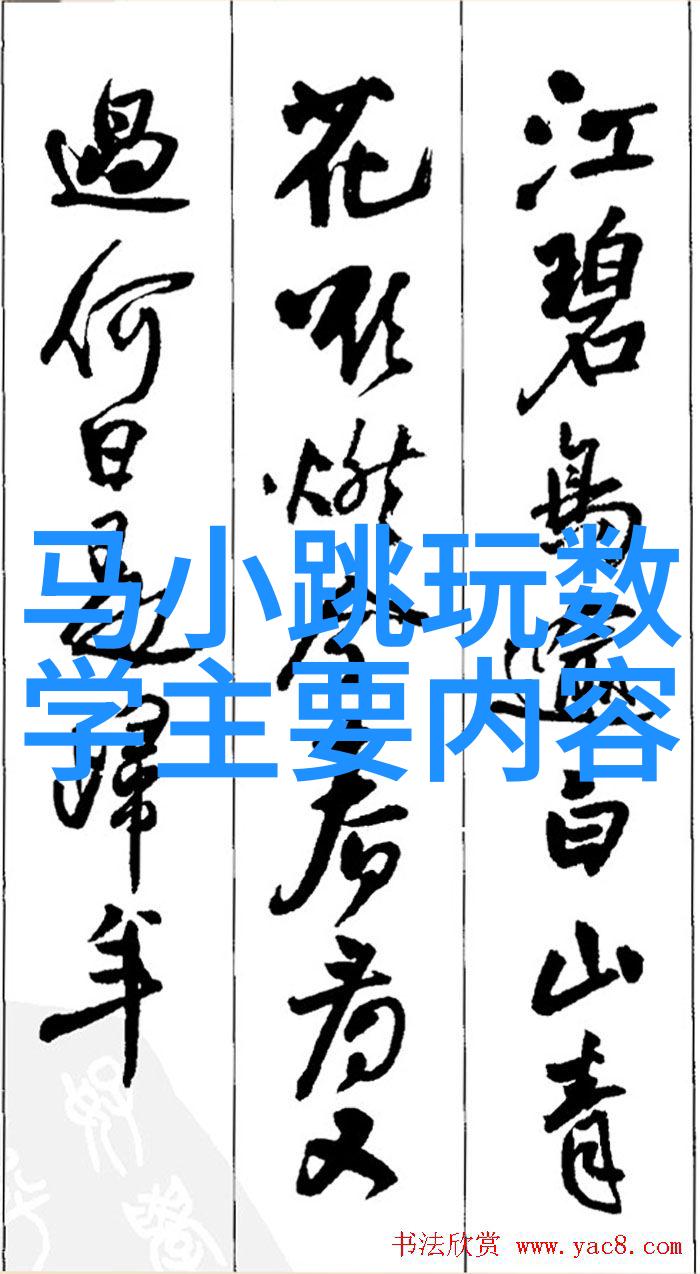 江碧鳥逾白山青
花欲燃今春看又
過何日是歸年
马小跳玩数
学主要内容
书法欣赏 www.yac8.com